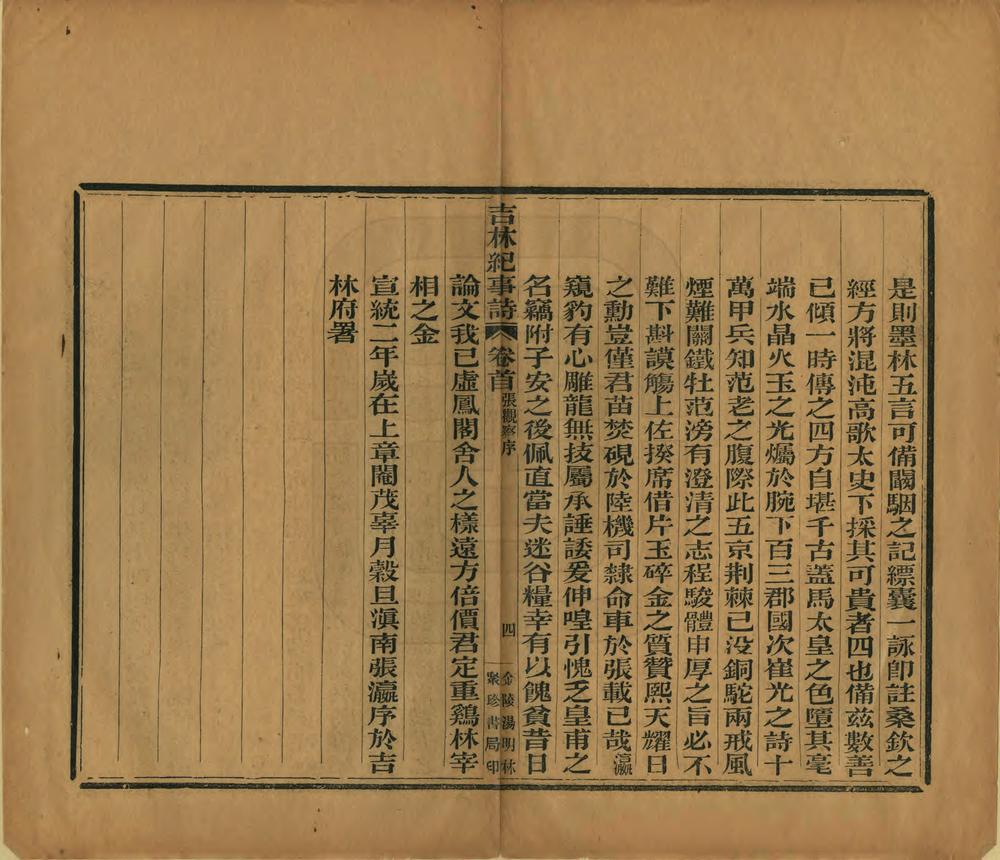 是則墨林五言可備闞駰之記縹囊一詠卽註桑欽之
經方將混沌高歌太史下採其可貴者四也備茲數善
已傾一時傳之四方自堪千古蓋馬太皇之色墮其毫
端水晶火玉之光爥於腕下百三郡國次崔光之詩十
萬甲兵知范老之腹際此五京荆棘已没銅駝兩戒風
煙難關鐵牡范滂有澄清之志程駿體申厚之旨必不
難下斟謨觴上佐揆席借片玉碎金之質贊熙天耀日
之勳豈僅君苗焚硯於陸機司隸命車於張載已哉瀛
窺豹有心雕龍無技屬承諈諉爰伸喤引愧乏皇甫之
名竊附子安之後佩直當夫迷谷糧幸有以餽貧昔日
吉林紀事詩 卷首 張觀察序 四 金陵湯明林聚珍書局印
論文我已虛鳳閣舍人之樣遠方倍價君定重鷄林宰
相之金
宣統二年歲在上章閹茂辜月穀旦滇南張瀛序於吉
林府署